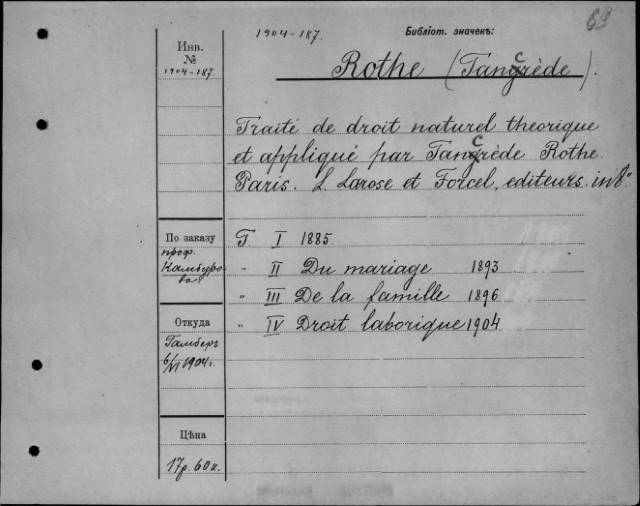 69
1904-187.
Библіот. значекъ:
Инв.
№
1904-187.
Rothe (Tancrède).
Traité de droit naturel theorique
et appliqué par Tancrède Rothe.
Paris. L. Larose et Forcel, editeurs. in 8°
По заказу
проф.
Камбуро-
ва
T I 1885
" II Du mariage 1893
" III De la famille 1896
" IV Droit laborique 1904
Откуда
Гамберъ
6/VI 1904 г.
Цѣна
17 р. 60 к.